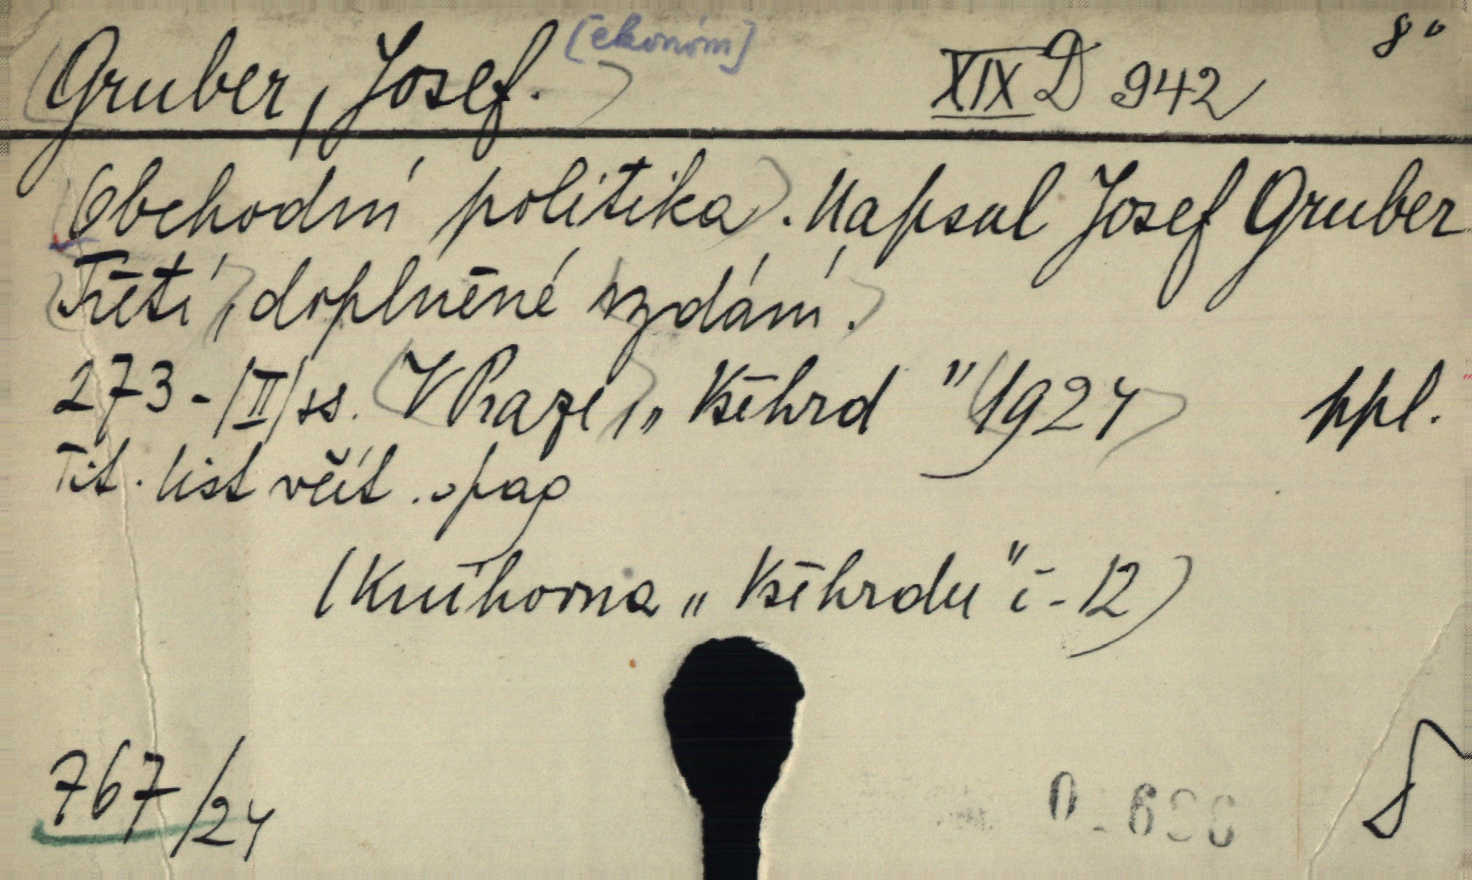 Gruber, Josef. [ekonom] XIX D 942 8°
Obchodní politika. Napsal Josef Gruber
Třetí, doplněné vydání.
273-/II/ss. V Praze, „Všehrd" 1924 ppl.
Tit. list včít. pag
(Knihovna „Všehrdu" č-12)
767/24